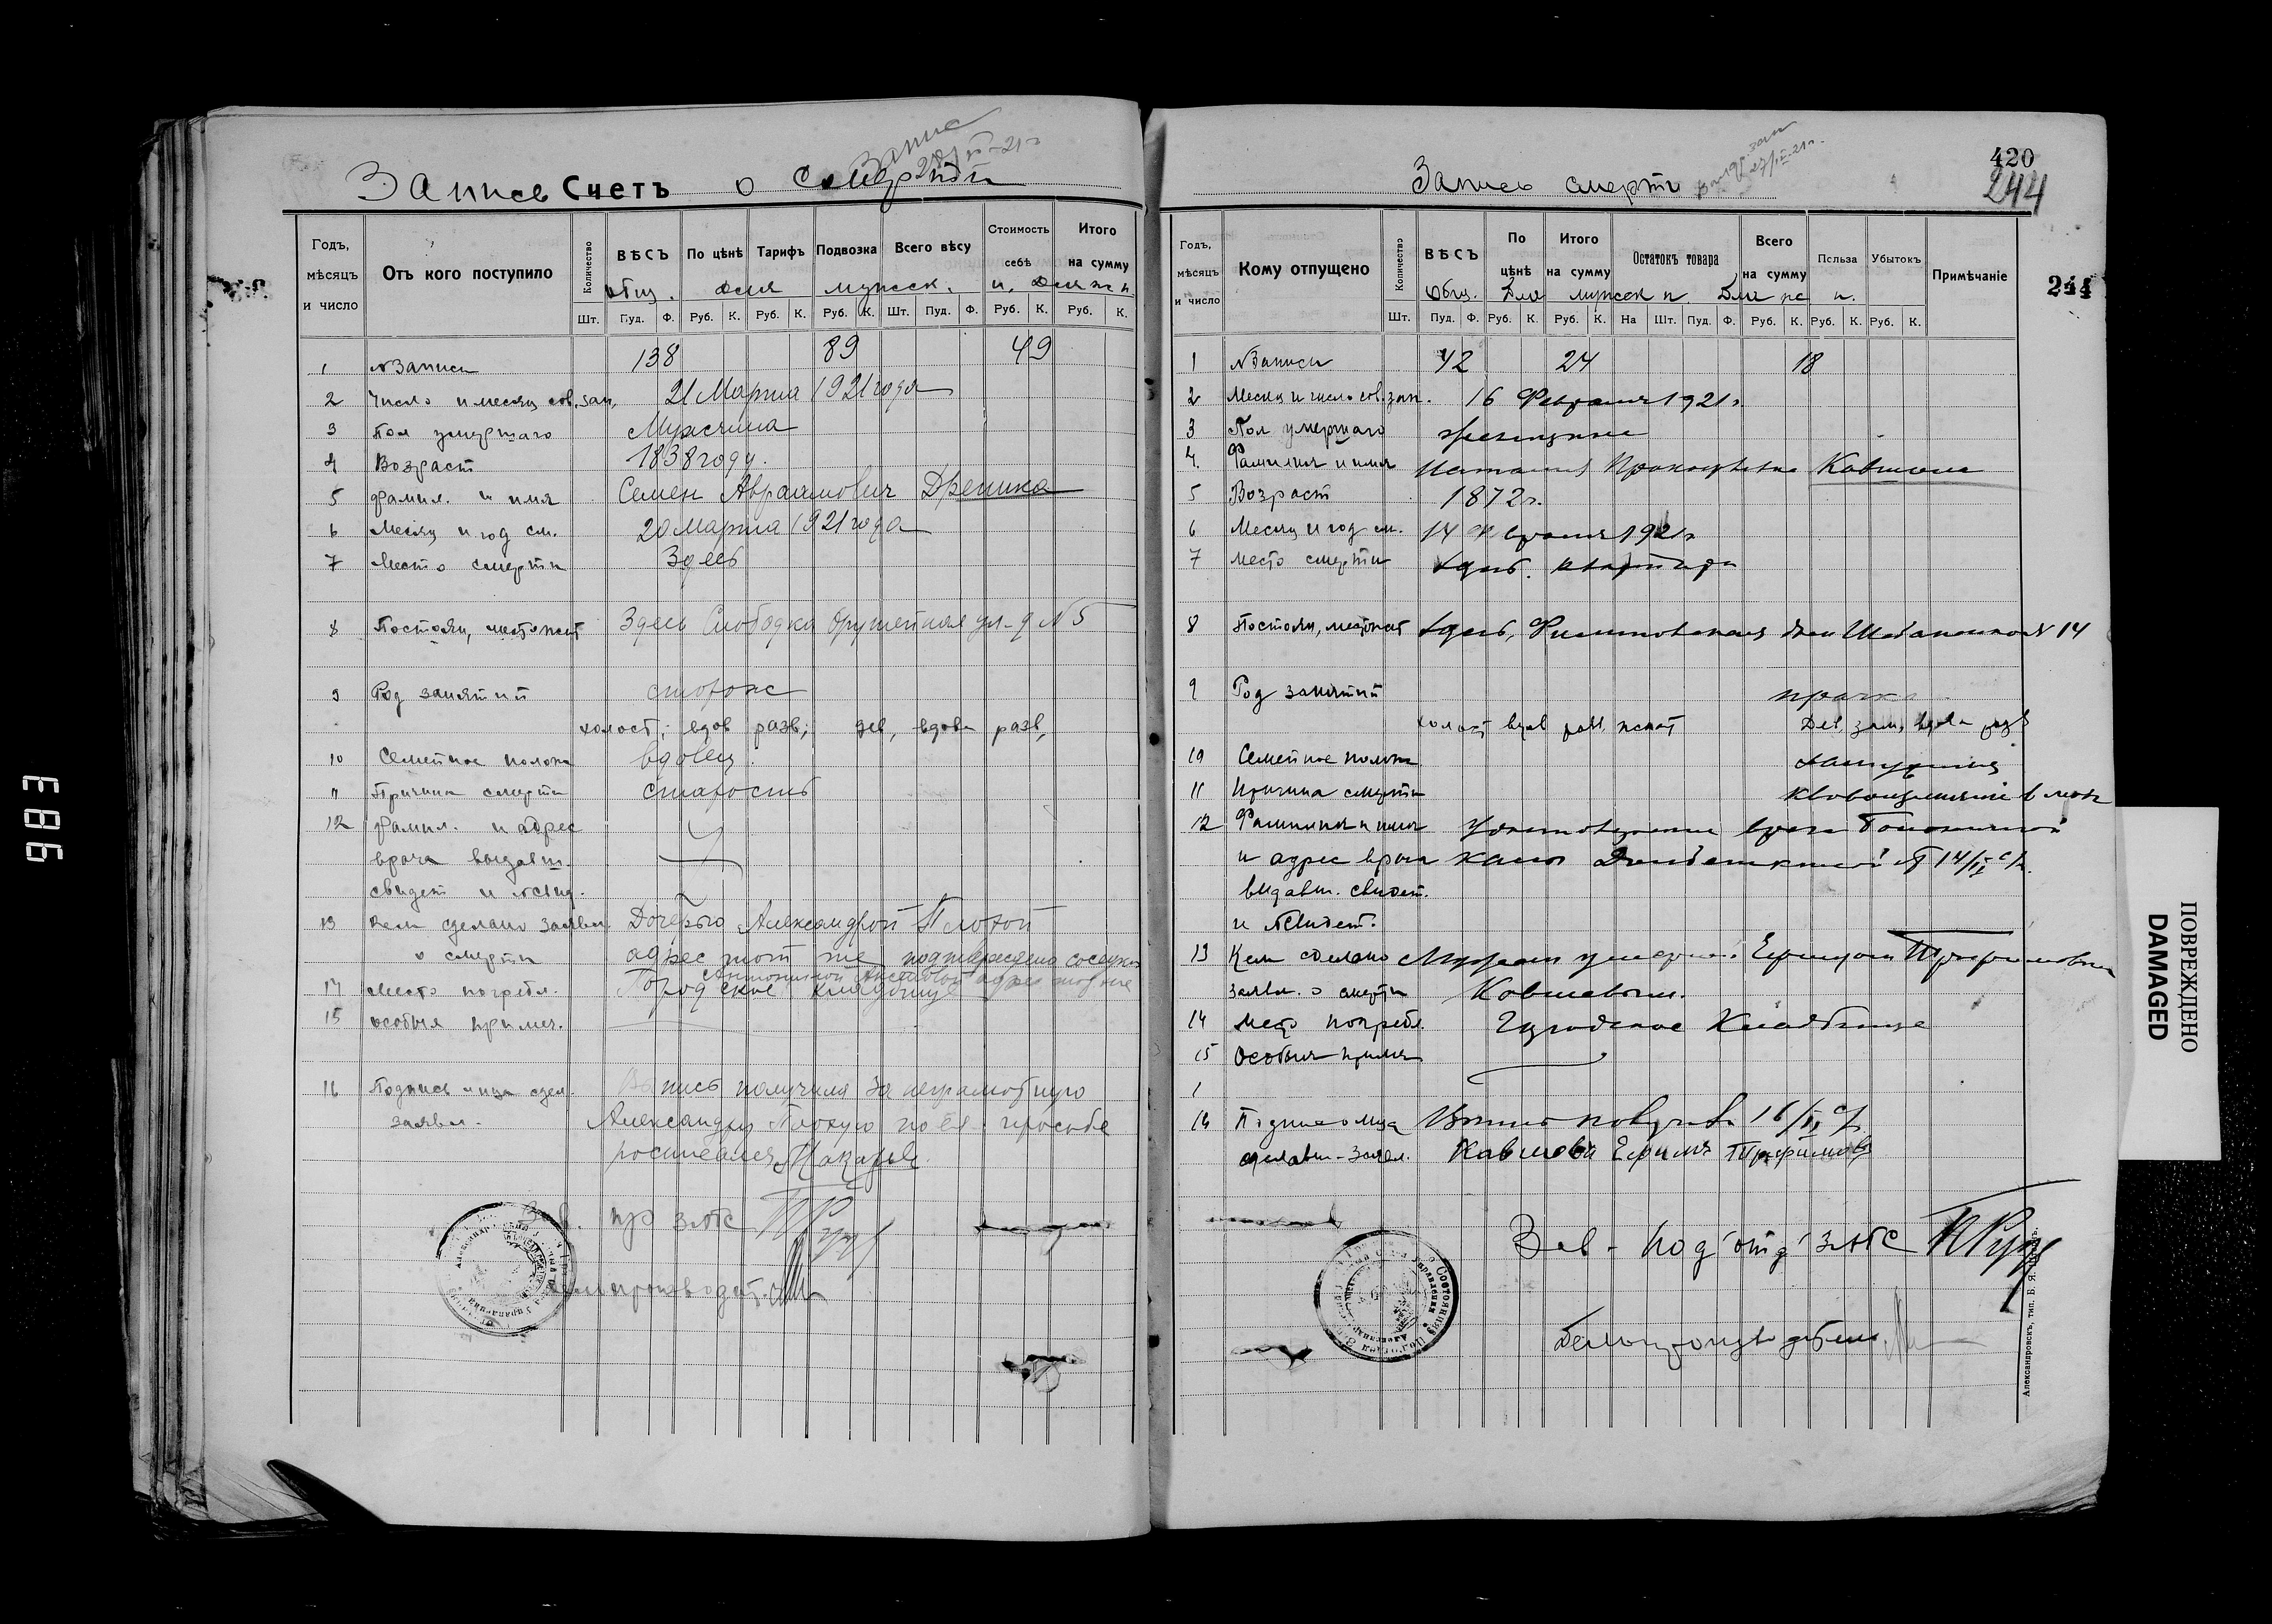 Запись Счетъ о смерти
Годъ, мѣсяцъ и число
Отъ кого поступило
Количество
ВѢСЪ
По цѣнѣ
Тарифъ
Подвозка
Всего вѣсу
Стоимость себѣ
Итого на сумму
общ. для мужск. п. для ж п.
Шт. Пуд. Ф. Руб. К. Руб. К. Руб. К. Шт. Пуд. Ф. Руб. К. Руб. К.
1 № Записи 138 89 49
2 Число и месяц сов. зап. 21 Марта 1921 года
3 Пол умершаго Мужчина
4 Возраст 1838 году.
5 Фамил. и имя Семен Авраамович Дрешка
6 Месяц и год см. 20 марта 1921 года
7 Место смерти Здесь
8 Постоян, местожит Здесь Слободка Оружейная ул. д № 5
9 Род занятий сторож
холост; вдов разв; дев, вдова разв,
10 Семейное полож вдовец
11 Причина смерти старость
12 Фамил. и адрес
врача выдавш.
свидет и № свид.
13 Кем сделано заявл. Дочерью Александрой Плохой
о смерти адрес тот же подтверждена соседкой
адрес тот же
14 Место погребл. Городское кладбище
15 особыя примеч.
16 Подпись лица сдел. Выпись получила за неграмотную
заявл. Александру Плохую по её просьбе
росписался
Зав. п/о ЗАГС
Делопроизводит.
420
244
Запись смерти
Годъ, мѣсяцъ и число
Кому отпущено
Количество
ВѢСЪ
По цѣнѣ
Итого на сумму
Остатокъ товара
Всего на сумму
Польза
Убытокъ
Примѣчаніе
244
Общ. Для мужск п. Для ж п.
Шт. Пуд. Ф. Руб. К. Руб. К. На Шт. Пуд. Ф. Руб. К. Руб. К. Руб. К.
1 № Записи 42 24 18
2 Месяц и число сов. зап. 16 Февраля 1921 г.
3 Пол умершаго женщина
4. Фамилия и имя Наталия Прокофьевна Ковшова
5 Возраст 1872 г.
6 Месяц и год см. 14 Февраля 1921 г
7 Место смерти здесь. квартира
8 Постоян, местожит здесь, Филиповская №14
9 Род занятий прачка
холост вдов разв. женат Дев, зам, вдова разв
10 Семейное полож замужняя
11 Причина смерти кровоизлияние в мозг
12 Фамилия и имя удостоверение врача
и адрес врача № 14/II с/г.
выдавш. свидет.
и № свидет.
13 Кем сделано Мужем умершей Ефимом Трофимовым
заявл. о смерти Ковшовым.
14 Место погребл. Городское Кладбище
15 Особыя примеч
16 Подпись лица Выпись получил 16/II с/г.
сделавш. заявл. Ковшов Ефим Трофимов
Зав. Под'отд' ЗАГС
Делопроизводитель
Александровскъ, тип. Б. Я.
ПОВРЕЖДЕНО
DAMAGED
E886